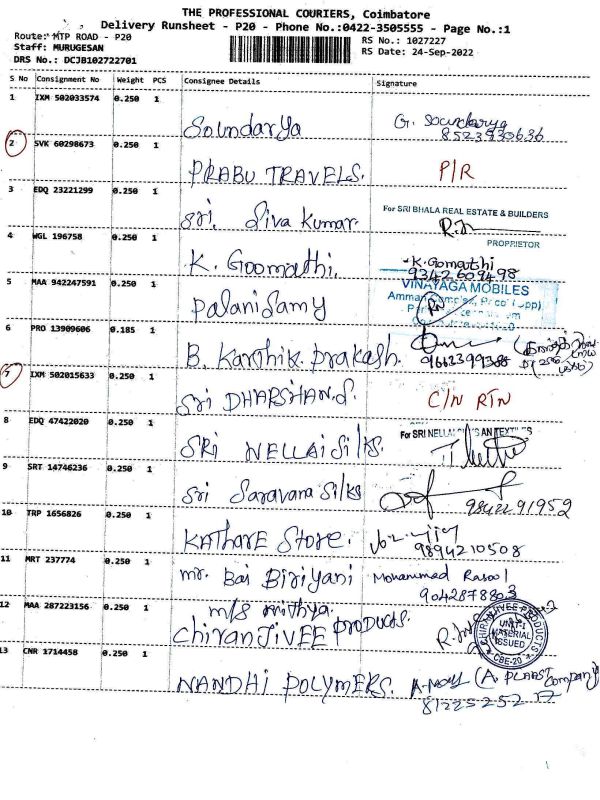 THE PROFESSIONAL COURIERS, Coimbatore
Delivery Runsheet - P20 - Phone No.:0422-3505555 - Page No.:1
Route: MTP ROAD - P20
RS No.: 1027227
Staff: MURUGESAN
RS Date: 24-Sep-2022
DRS No.: DCJB102722701
S No Consignment No Weight PCS Consignee Details Signature
1 IXM 502033574 0.250 1
Soundarya G. Soundarya
8523930636
2 SVK 60298673 0.250 1
PRABU TRAVELS. P/R
3 EDQ 23221299 0.250 1
For SRI BHALA REAL ESTATE & BUILDERS
Sri. Siva Kumar.
PROPRIETOR
4 WGL 196758 0.250 1
K. Goomathi. K. Gomathi
9342609498
5 MAA 942247591 0.250 1
VINAYAGA MOBILES
Palanisamy
6 PRO 13909606 0.185 1
B. Karthik prakash.
7 IXM 502015633 0.250 1
Sri DHARSHAN.S. C/N RTN
8 EDQ 47422020 0.250 1
For SRI NELLAI
SRI NELLAI Silks.
9 SRT 14746236 0.250 1
Sri Saravana Silks
9842291952
10 TRP 1656826 0.250 1
KAThARE Store.
9894210508
11 MRT 237774 0.250 1
mr. Bai Biriyani Mohammad Rasool
9042878803
12 MAA 287223156 0.250 1
m/s nithya.
ChiranJIVEE Products.
CHIRANJIVEE PRODUCTS
UNIT-I
MATERIAL
ISSUED
CBE-20
13 CNR 1714458 0.250 1
NANDHI POLYMERS. (A. PLAAST Company)
8122525217